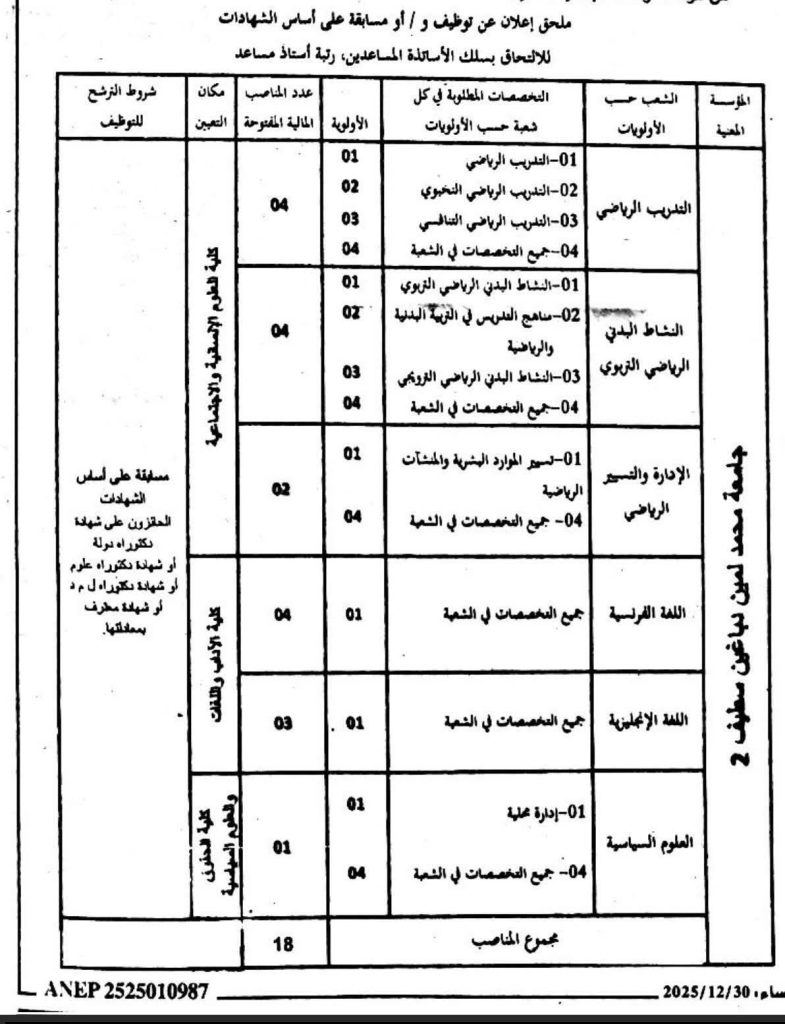 ملحق إعلان عن توظيف و / أو مسابقة على أساس الشهادات
للالتحاق بسلك الأساتذة المساعدين، رتبة أستاذ مساعد
المؤسسة المعنية
الشعب حسب الأولويات
التخصصات المطلوبة في كل شعبة حسب الأولويات
الأولوية
عدد المناصب المالية المفتوحة
مكان التعيين
شروط الترشح للتوظيف
جامعة محمد لمين دباغين سطيف 2
التدريب الرياضي
01-التدريب الرياضي
01
02-التدريب الرياضي النخبوي
02
03-التدريب الرياضي التنافسي
03
04-جميع التخصصات في الشعبة
04
04
كلية العلوم الإنسانية والاجتماعية
النشاط البدني
الرياضي التربوي
01-النشاط البدني الرياضي التربوي
01
02-مناهج التدريس في التربية البدنية
والرياضية
02
03-النشاط البدني الرياضي الترويحي
03
04-جميع التخصصات في الشعبة
04
04
الإدارة والتسيير
الرياضي
01-تسيير الموارد البشرية والمنشآت
الرياضية
01
04- جميع التخصصات في الشعبة
04
02
مسابقة على أساس
الشهادات
الحائزون على شهادة
دكتوراه دولة
أو شهادة دكتوراه علوم
أو شهادة دكتوراه ل م د
أو شهادة معترف
بمعادلتها.
اللغة الفرنسية
جميع التخصصات في الشعبة
01
04
كلية الآداب واللغات
اللغة الإنجليزية
جميع التخصصات في الشعبة
01
03
العلوم السياسية
01-إدارة محلية
01
04- جميع التخصصات في الشعبة
04
01
كلية الحقوق
والعلوم السياسية
مجموع المناصب
18
2025/12/30
ANEP 2525010987